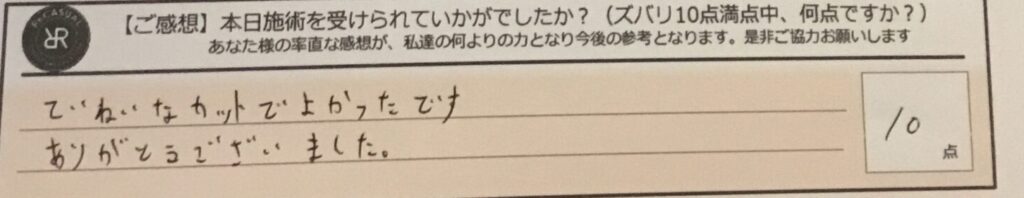 【ご感想】本日施術を受けられていかがでしたか？（ズバリ10点満点中、何点ですか？）
あなた様の率直な感想が、私達の何よりの力となり今後の参考となります。是非ご協力お願いします
ていねいなカットでよかったです
ありがとうございました。
10
点